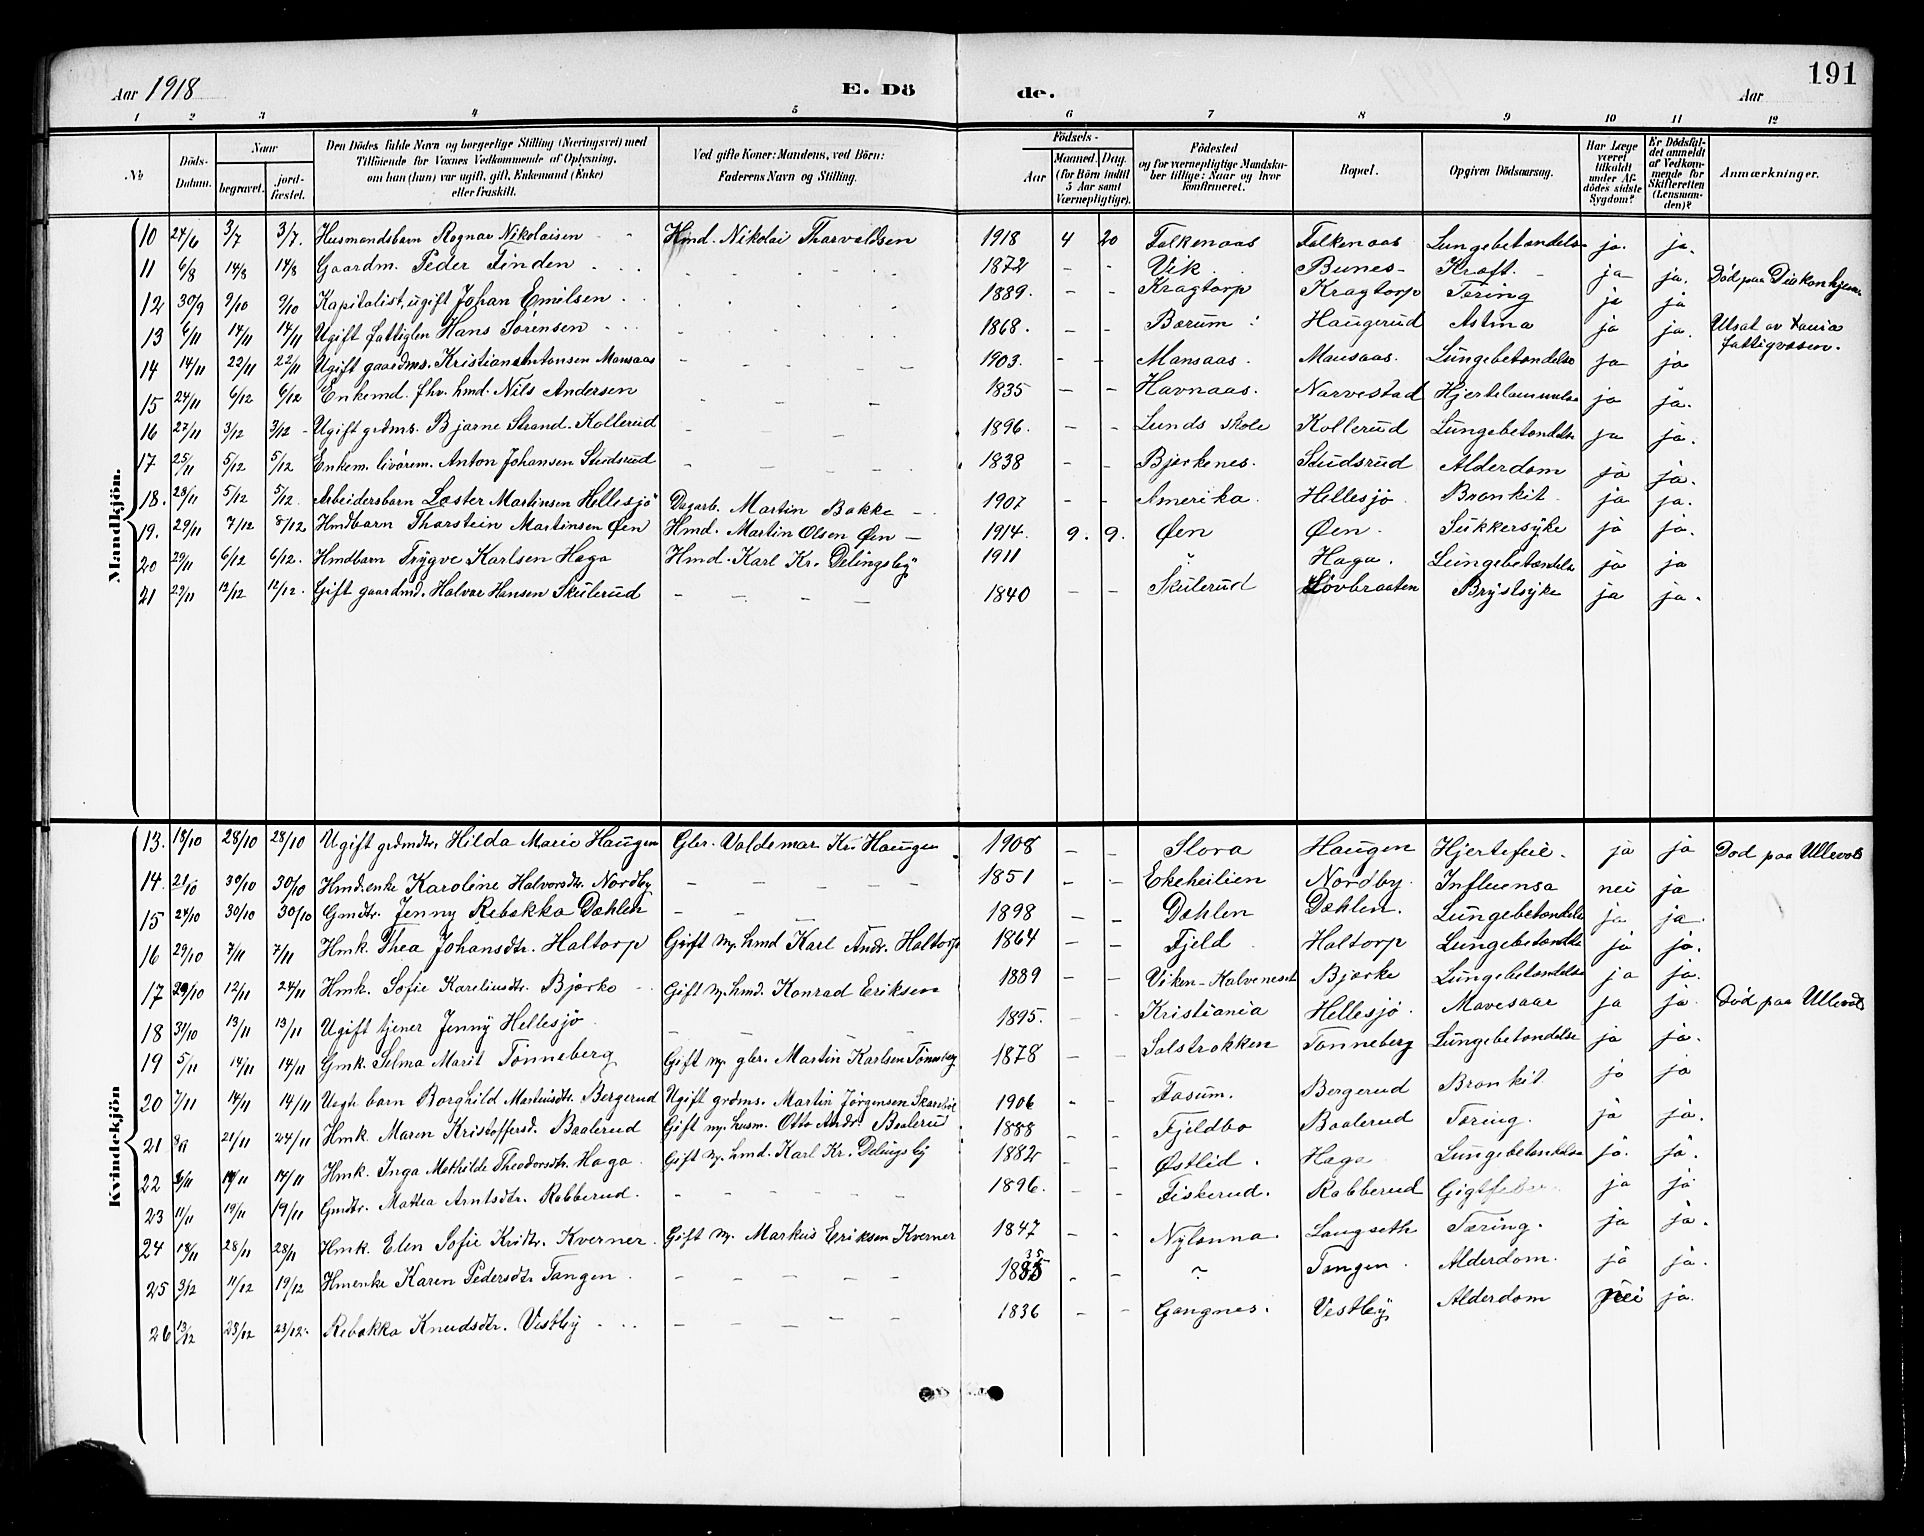 Aar 1918
E. Dö
de.
Aar
191
1 2 3 4 5 6 7 8 9 10 11 12
No
Döds-Datum.
Naar
begravet.
jord-fæstet.
Den Dödes fulde Navn og borgerlige Stilling (Næringsvei) med
Tilföiende for Voxnes Vedkommende af Oplysning,
om han (hun) var ugift, gift, Enkemand (Enke)
eller fraskilt.
Ved gifte Koner: Mandens, ved Börn:
Faderens Navn og Stilling.
Födsels-
Aar
Maaned. Dag.
(for Börn indtil
5 Aar samt
Værnepligtige).
Födested
og for værnepligtige Mandska-
ber tillige: Naar og hvor
konfirmeret.
Bopæl.
Opgiven Dödsaarsag.
Har Læge
været
tilkaldt
under Af-
dödes sidste
Sygdom?
Er Dödsfal-
det anmeldt
af Vedkom-
mende for
Skifteretten
(Lensman-
den)?
Anmærkninger.
Mandkjön.
10 24/6 3/7 3/7. Husmandsbarn Ragnar Nikolaisen Hmd. Nikolai Tharvaldsen 1918 4 20 Falkenaas Falkenaas Lungebetændelse ja. ja.
11 6/8 14/8 14/8 Gaardm. Peder Finden 1872 Vik Bunes Kræft. ja ja.
12 30/9 9/10 9/10 Kapitalist, ugift Johan Emilsen 1889. Kragtorp Kragtorp Tæring ja ja Död paa Diakonhjem.
13 6/11 14/11 14/11 Ugift fattiglem Hans Sörensen 1868. Bærum Haugerud Astma ja ja. Utsat av
fattigvæsen.
14 14/11 22/11 22/11 Ugift gaardms. Kristian Antonsen Mansaas 1903. Mansaas. Mansaas. Lungebetændelse ja ja
15 24/11 6/12 6/12 Enkemd. fhv. hmd. Nils Andersen 1835 Havnaas. Narvestad ja ja.
16 27/11 3/12 3/12 Ugift grdms. Bjarne Strand. Kollerud 1896. Lunds skole Kollerud Lungebetændelse ja ja.
17 25/11 5/12 5/12 Enkem. livörem. Anton Johansen Studsrud 1838 Bjerkenes. Studsrud Alderdom ja ja.
18. 23/11 5/12 5/12. Arbeidersbarn Laster Martinsen Hellesjö Dagarb. Martin Bakke 1907 Amerika. Hellesjö Bronkit. ja ja.
19. 29/11 7/12 8/12 Hmdbarn Tharstein Martinsen Øen Hmd. Martin Olsen Øen 1914. 9. 9. Øen Øen Sukkersyke ja ja.
20 29/11 6/12 6/12. Hmdbarn Trygve Karlsen Haga Hmd. Karl Kr. Delingsby 1911 " Haga. Lungebetændelse ja ja
21 29/11 12/12 12/12. Gift gaardmd. Halvor Hansen Skulerud 1840 Skulerud Lövbraaten Brystsyke ja ja.
Kvindekjön
13. 18/10 28/10 28/10 Ugift grdmdtr. Hilda Marie Haugen Gbr. Valdemar Kr. Haugen 1908 Slora Haugen Hjertefeil. ja ja Död paa Ullevol
14. 21/10 30/10 30/10 Hmd.enke Karoline Halvorsdtr. Nordby 1851 Ekeheilien Nordby. Influensa nei ja
15 24/10 30/10 30/10 Gmdtr. Jenny Rebekka Dæhlen 1898 Dæhlen Dæhlen. Lungebetændelse ja ja.
16 29/10 7/11 7/11 Hmk. Thea Johansdtr. Haltorp Gift m. hmd Karl Andr. Haltorp 1864 Fjeld Haltorp Lungebetændelse ja ja.
17 29/10 12/11 24/11 Hmk. Sofie Kareliusdtr. Bjerke Gift m. hmd. Konrad Eriksen 1889 Viken-Halveneset Bjerke Lungebetændelse ja ja.
18 31/10 13/11 13/11 Ugift tjener Jenny Hellesjö. 1895. Kristiania Hellesjö Mavesaar ja ja Död paa Ullevol
19 5/11 14/11 14/11 Gmk. Selma Marit Tönneberg Gift m. gbr. Martin Karlsen Tönneberg 1878 Solstrokken Tönneberg Lungebetændelse ja ja.
20 7/11 14/11 14/11 barn Borghild Martinsdtr. Bergerud Ugift grdms. Martin Jörgensen 1906 Fosum. Bergerud Bronkit ja ja
21 21/11 24/11 Hmk. Maren Kristoffersd. Baalerud Gift m. husm. Otto Andr. Baalerud 1888 Fjeldbo Baalerud Tæring. ja ja.
22 14/11 14/11 Hmk. Inga Mathilde Theodorsdtr. Haga Gift m. hmd. Karl Kr. Delingsby 1882 Østlid. Haga Lungebetændelse ja. ja.
23 11/11 19/11 19/11 Gmdtr. Mathea Arntsdtr. Rabberud. 1896. Fiskerud. Rabberud Gigtfeber ja ja
24 18/11 28/11 28/11 Hmk. Elen Sofie Krdtr. Kverner. Gift m. Markus Eriksen Kverner 1847 Nylænna. Langseth Tæring. ja ja.
25 3/12 11/12 19/12 Hmenke Karen Pedersdtr. Tangen. 1835 ? Tangen. Alderdom. ja ja.
26 13/12 23/12 23/12. Rebekka Knudsdtr. Vestby 1836 Gangnes. Vestby Alderdom nei ja.